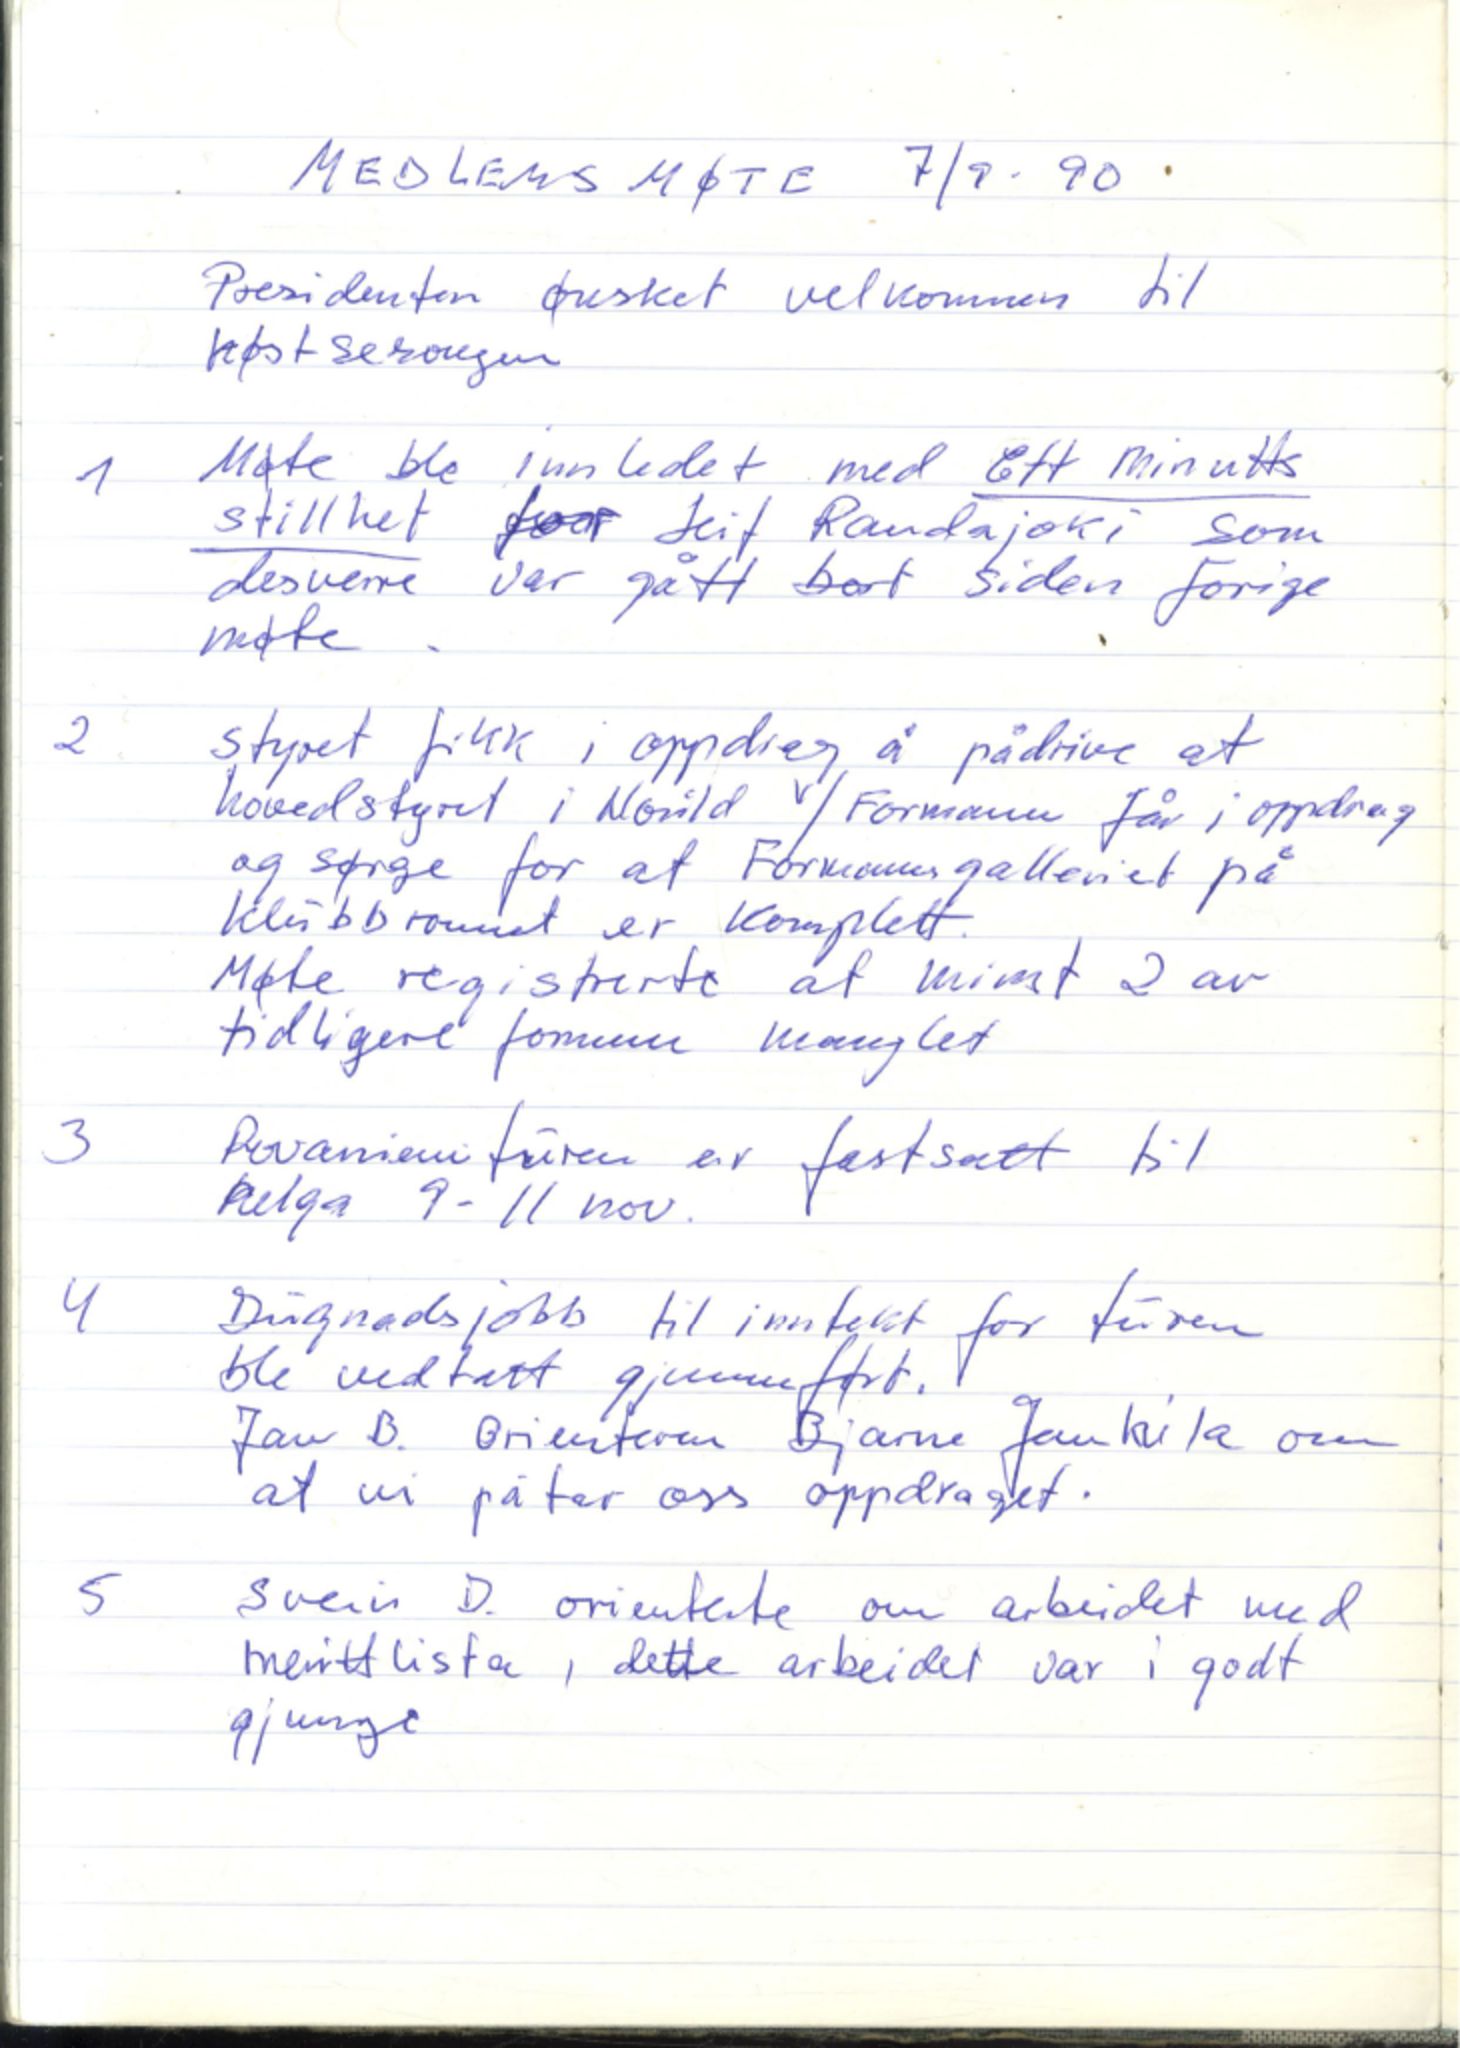 MEDLEMSMØTE 7/9-90
Presidenten ønsket velkommen til
høstsesongen
1 Møte ble innledet med Ett minutts
stillhet for Leif Randajoki som
desverre var gått bort siden forige
møte.
2 styret fikk i oppdrag å pådrive at
hovedstyret i Norild v/Formann får i oppdrag
og sørge for at Formannsgalleriet på
klubbromet er komplett.
Møte registrerte at minst 2 av
tidligere formenn manglet
3 Rovaniemi turen er fastsatt til
helga 9-11 nov.
4 Dugnadsjobb til inntekt for turen
ble vedtatt gjennomført.
Jan B. Orienterer Bjarne Jankila om
at vi påtar oss oppdraget.
5 Svein D. orienterte om arbeidet med
merittlista, dette arbeidet var i godt
gjenge